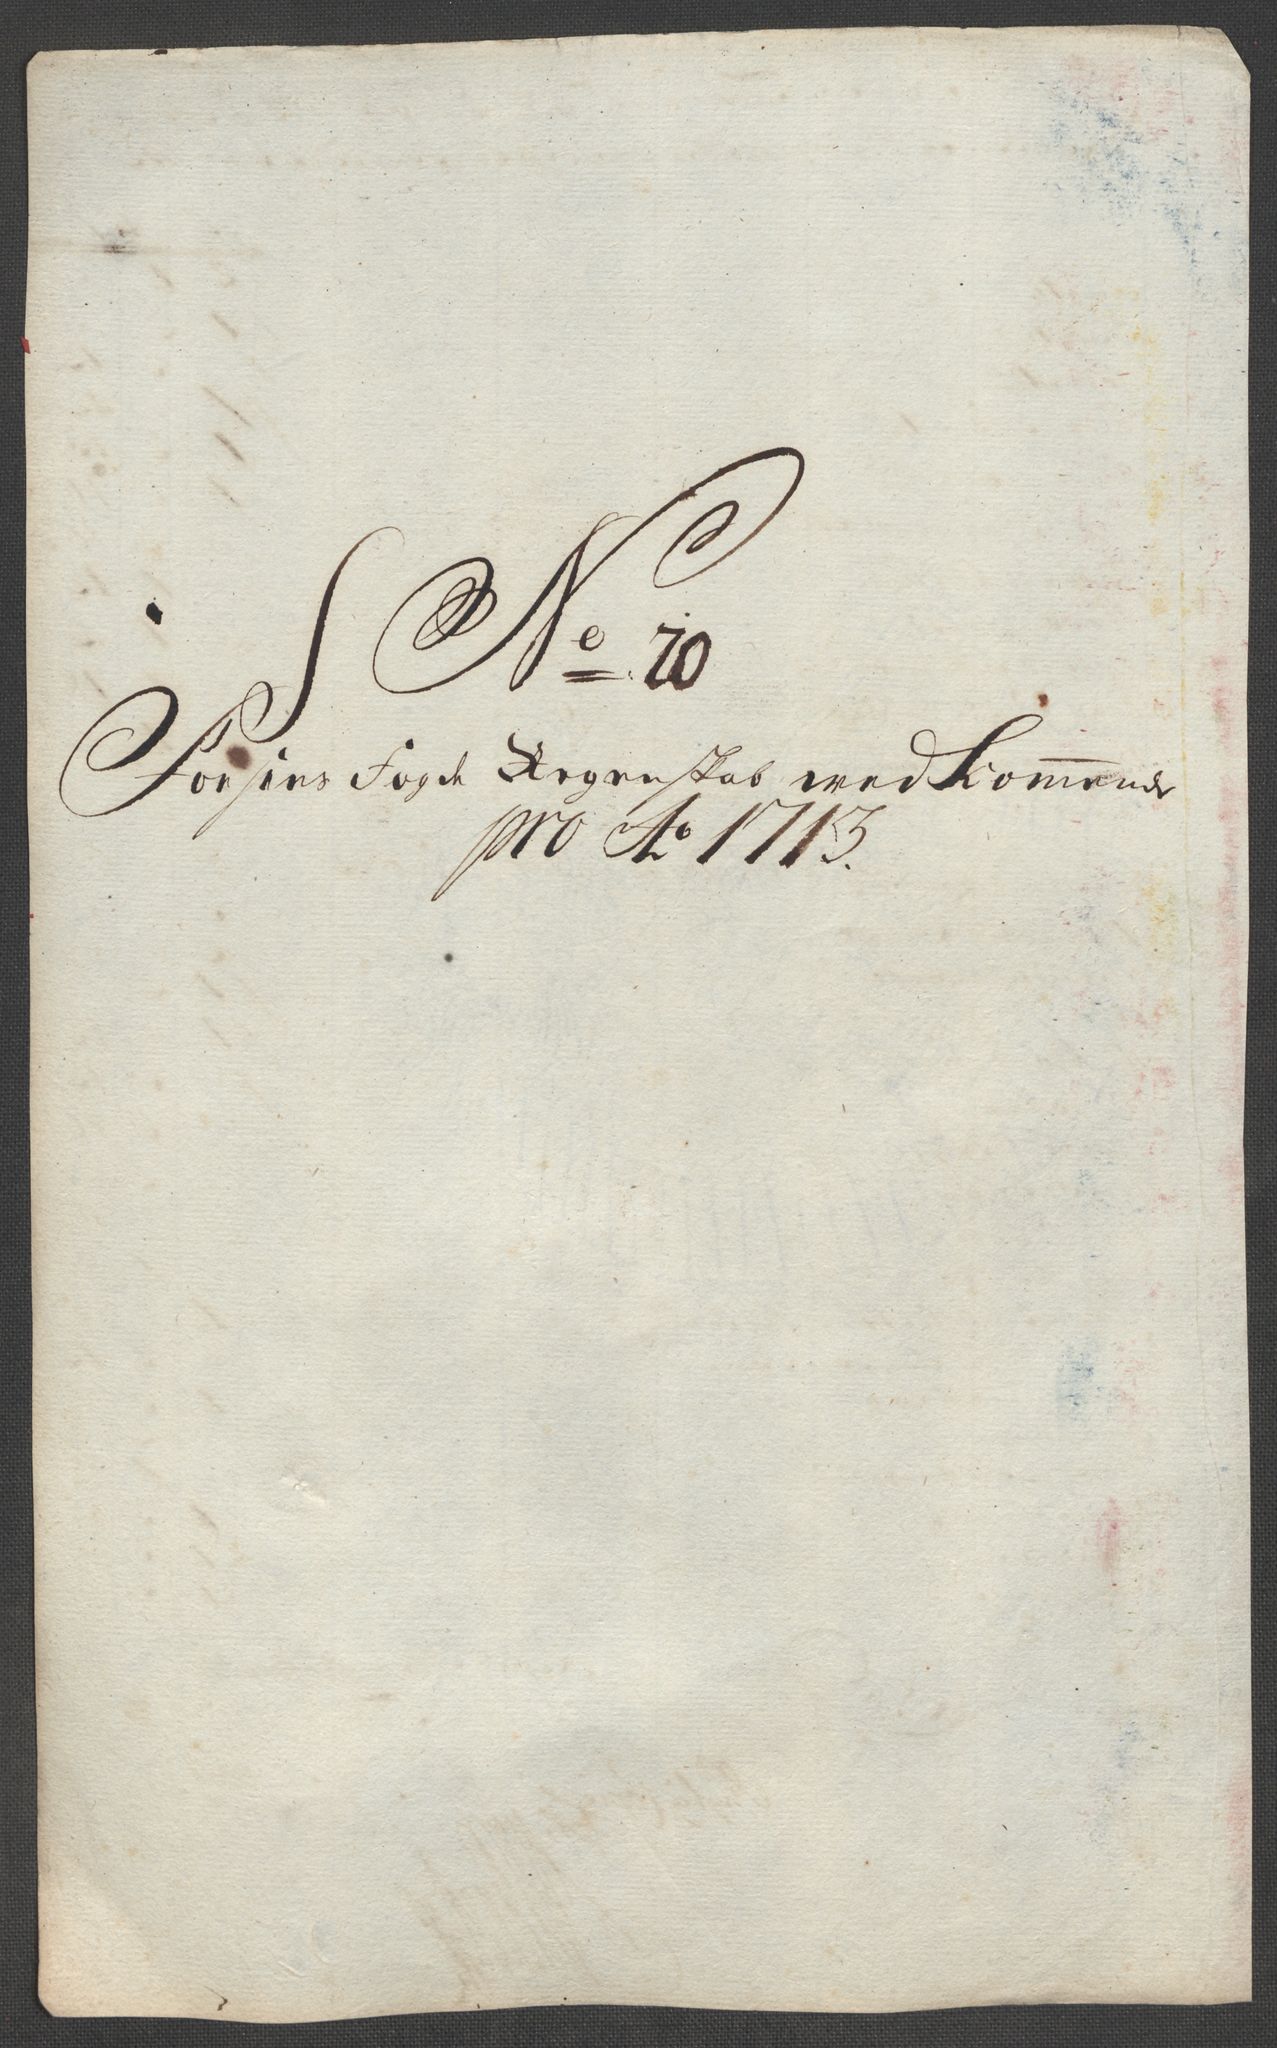 No 20
Fosens Fogde Regenskab vedkommende
pro Ao 1713.